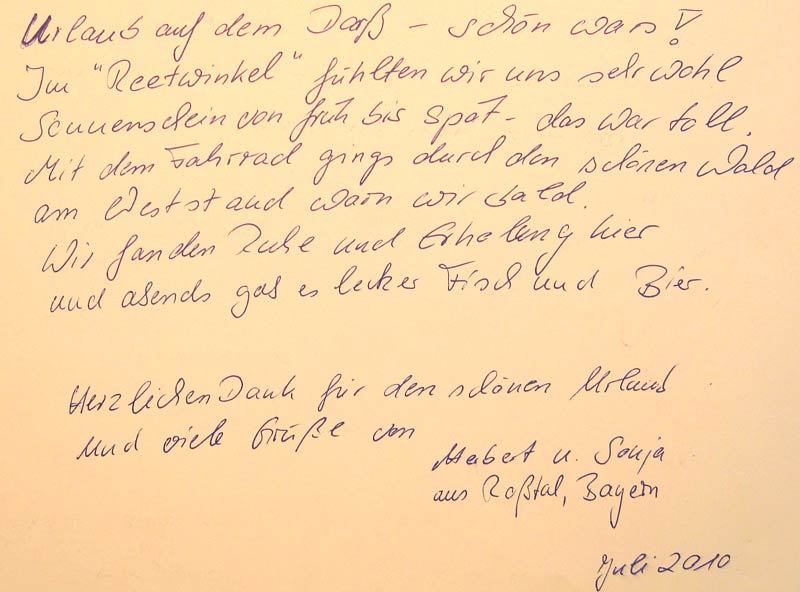 Urlaub auf dem Darß – schön wars!
Im "Reetwinkel" fühlten wir uns sehr wohl
Sonnenschein von früh bis spät – das war toll.
Mit dem Fahrrad gings durch den schönen Wald
am Weststrand warn wir bald.
Wir fanden Ruhe und Erholung hier
und abends gab es lecker Fisch und Bier.
Herzlichen Dank für den schönen Urlaub
und viele Grüße von
u. Sonja
aus Roßtal, Bayern
Juli 2010